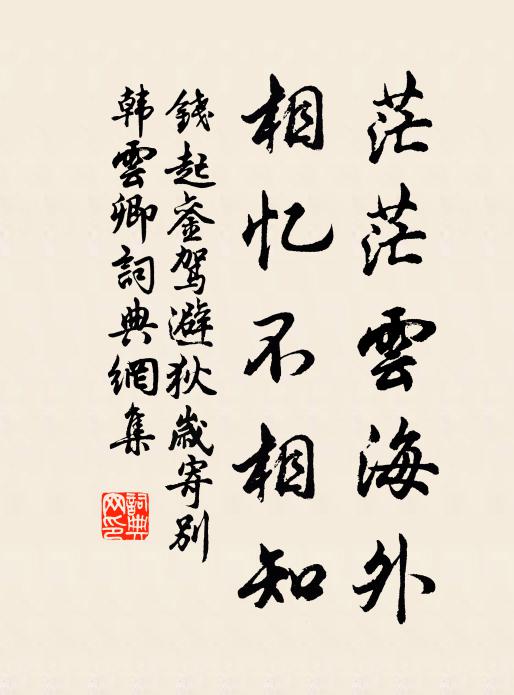 茫茫雲海外
相忆不相知
錢起銮驾避狄歲寄别
韩雲卿詞典網集
詞典网印